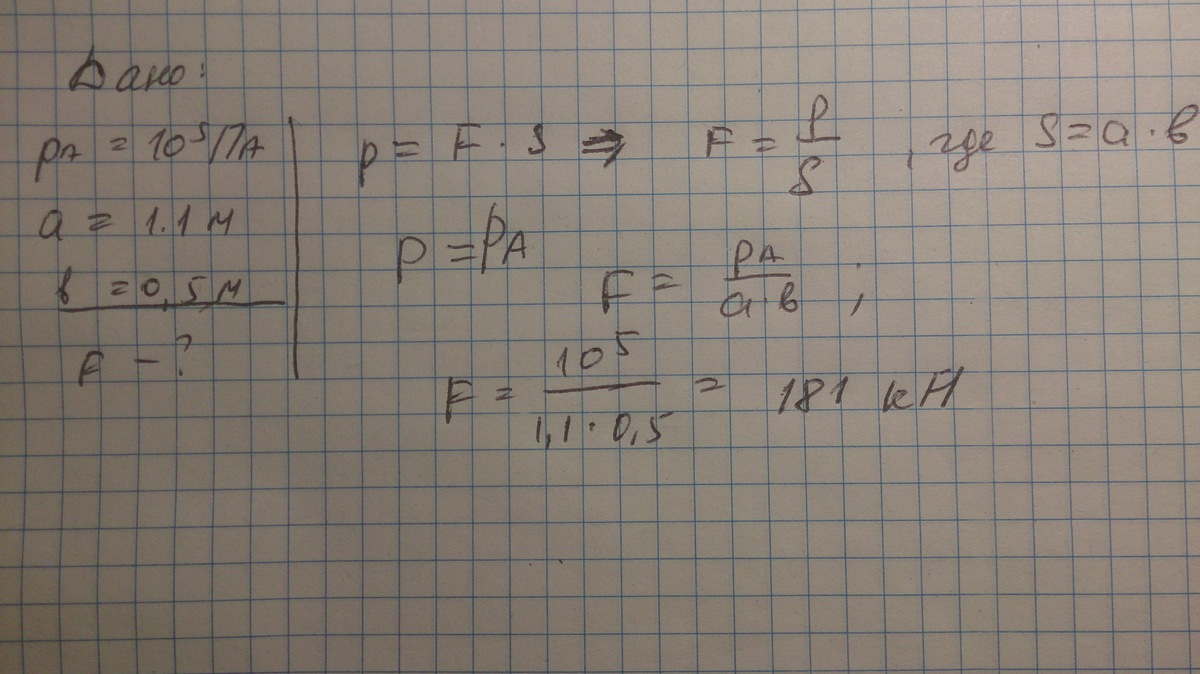 Дано:
pА = 10⁵ ПА
a = 1.1 м
в = 0,5 м
F - ?
p = F · S ⇒ F = p/S , где S = a · в
p = pА
F = pА/a·в ;
F = 10⁵/1,1·0,5 = 181 кН